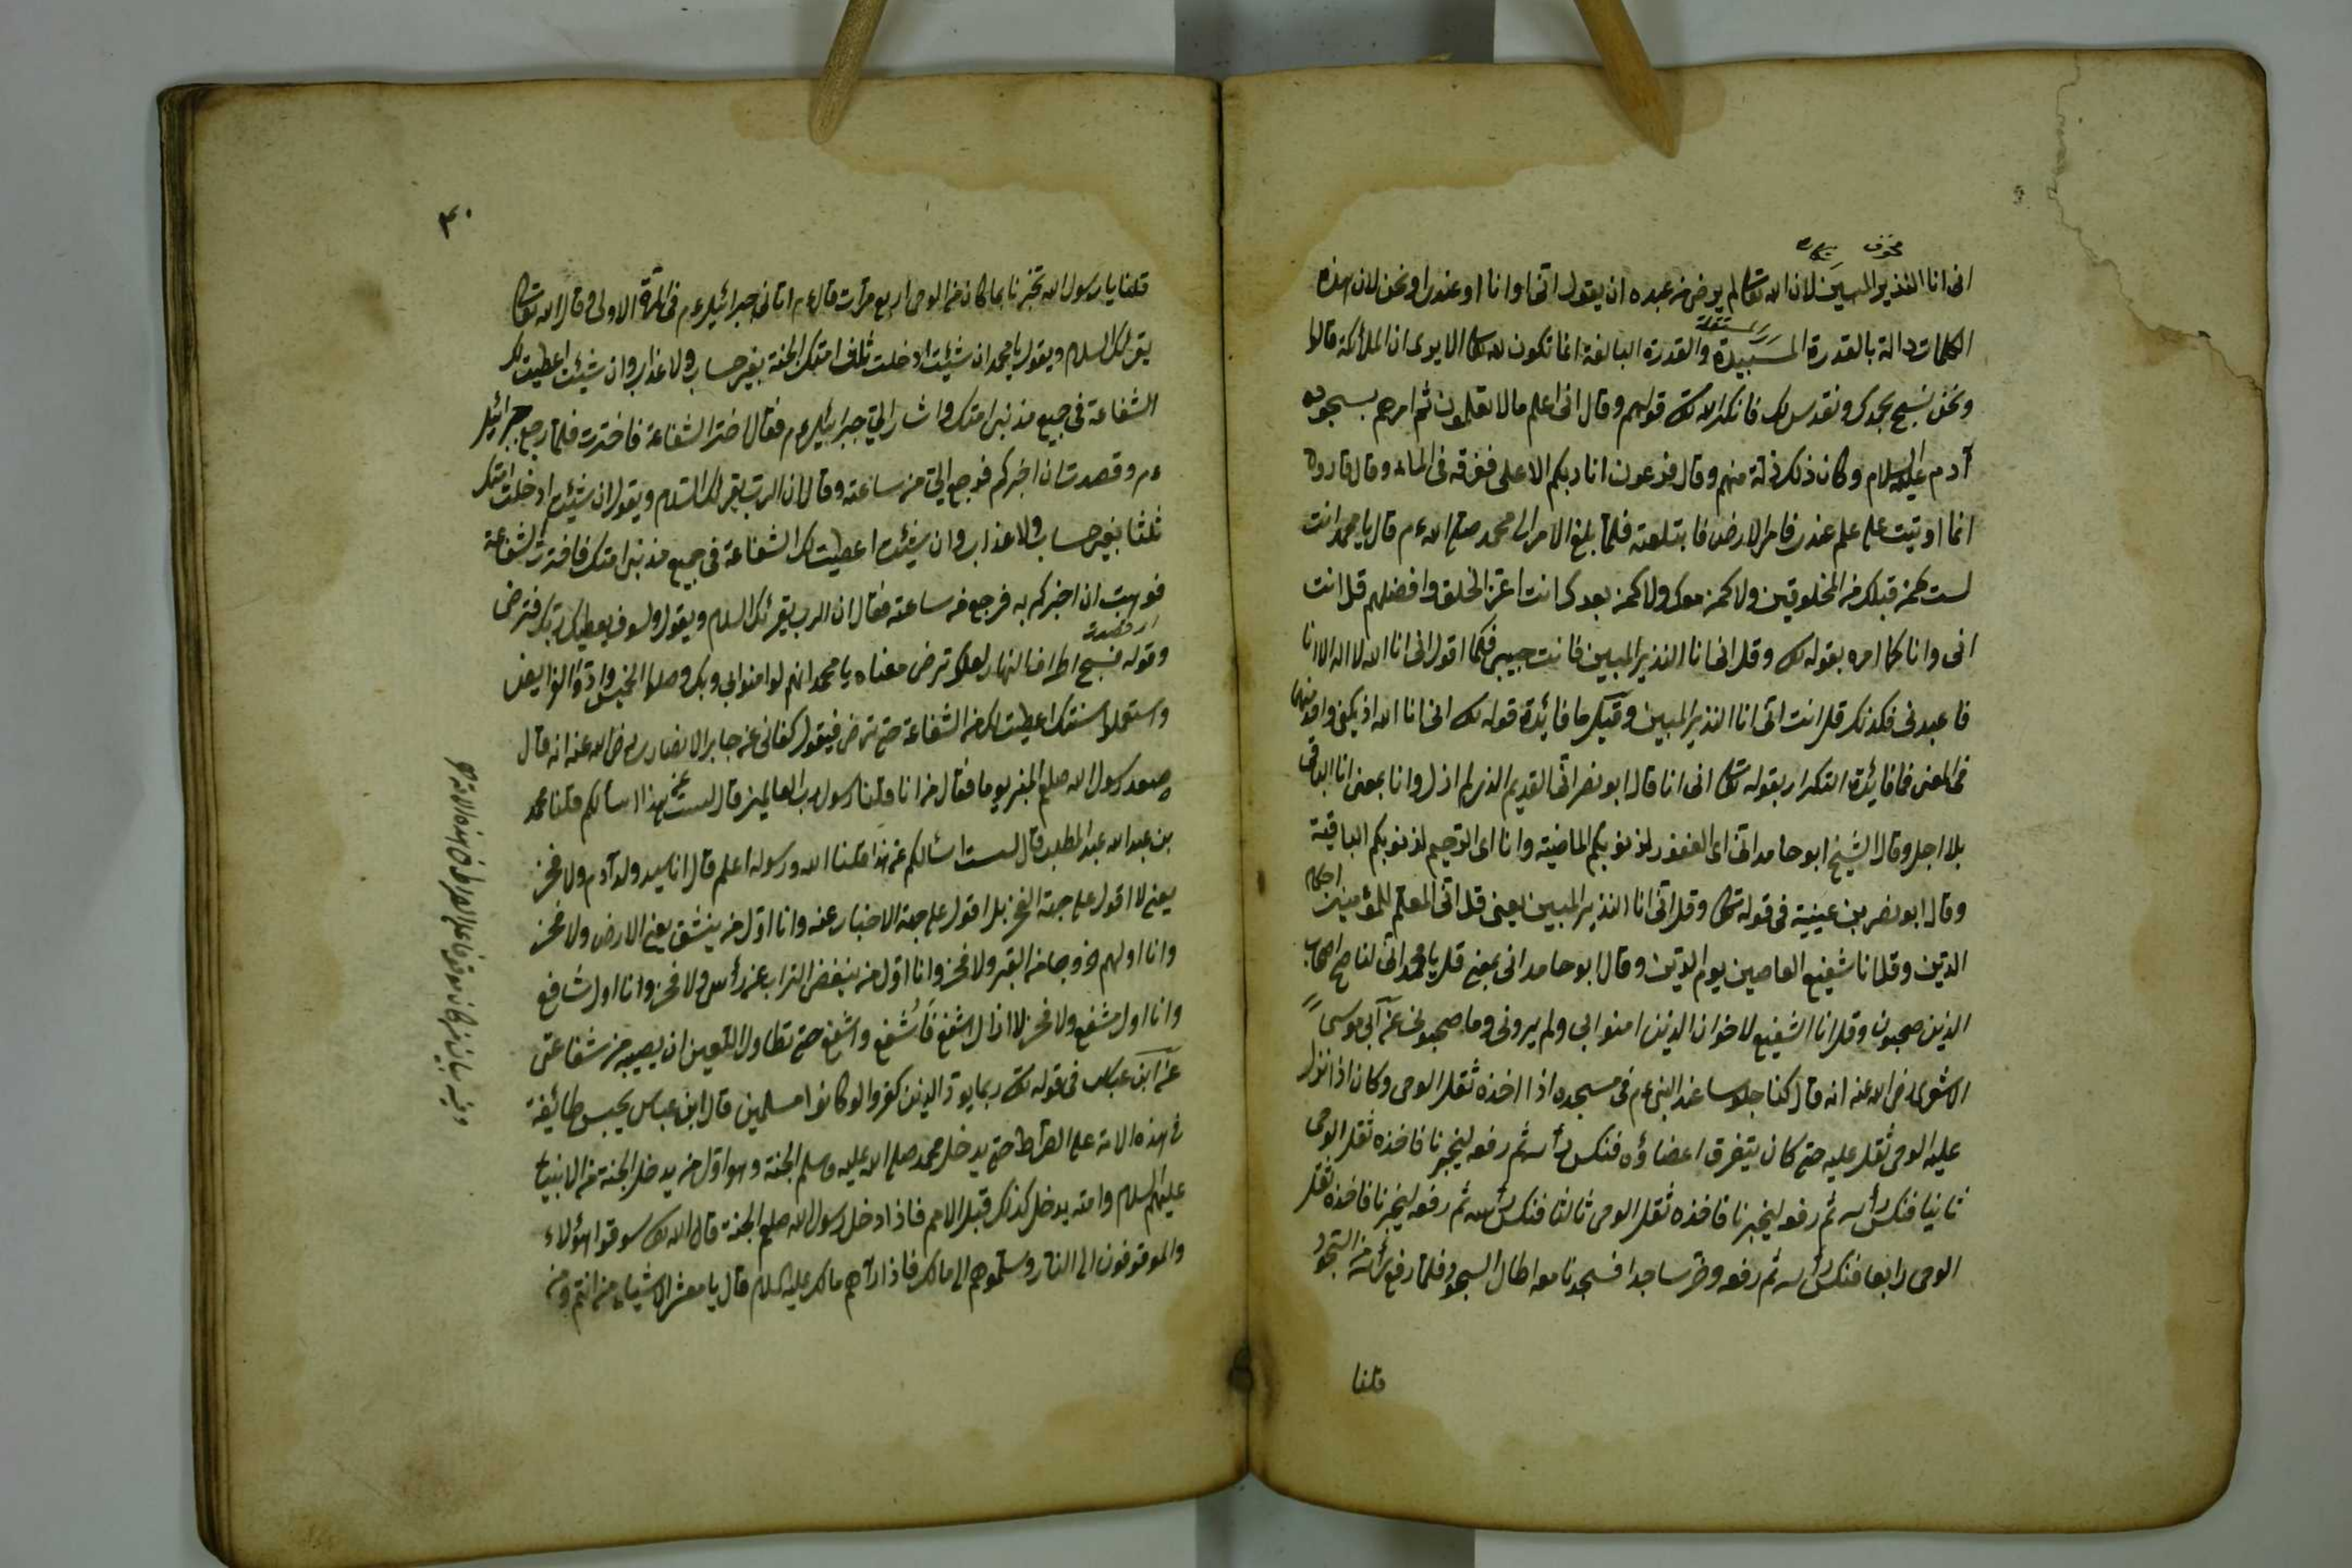 انى انا النذير المبين لان الله تعالى لم يرض من عبده ان يقول انى او انا او عندى او نحن لان هذه
الكلمات دالة بالقدرة والقدرة البالغة انما تكون لله تعالى الا يرى ان الملائكة قالوا
ونحن نسبح بحمدك ونقدس لك فانكر الله تعالى قولهم وقال انى اعلم ما لا تعلمون ثم امرهم بسجود
آدم عليه السلام وكان ذلك زلة منهم وقال فرعون انا ربكم الاعلى فغرقه فى الماء وقال قارون
انما اوتيت على علم عندى فامر الارض فابتلعته فلما بلغ الامر الى محمد صلى الله ءم قال يا محمد انت
لست كمن قبلك من المخلوقين ولا كمن معك ولا كمن بعدك انت اعز الخلق وافضلهم قل انت
انى وانا كما امره بقوله تعالى وقل انى انا النذير المبين فانت حبيبى فكما اقول انى انا الله لا اله الا انا
فاعبدنى فكذلك قل انت انى انا النذير المبين وقيل ما فائدة قوله تعالى انى انا الله
فى المعنى فما فائدة التكرار بقوله تعالى انى انا قال ابو نصر انى القديم الذى لم ازل وانا بمعنى انا الباقى
بلا اجل وقال الشيخ ابو حامد انى اى الغفور لذنوبكم الماضية وانا اى الرحيم لذنوبكم الباقية
وقال ابو نصر بن عيينة فى قوله تعالى وقل انى انا النذير المبين يعنى قل انى المعلم للمؤمنين احكام
الدين وقل انا شفيع العاصين يوم الدين وقال ابو حامد انى بمعنى قل يا محمد انى لناصح اصحاب
الذين صحبون وقل انا الشفيع لاخوان الذين امنوا بى ولم يرونى وما صحبونى عن ابى موسى
الاشعرى رضى الله عنه انه قال كنا جلوسا عند النبى ءم فى مسجده اذا اخذه ثقل الوحى وكان اذا نزل
عليه الوحى ثقل عليه حتى كان يتفرق اعضاؤه فنكس رأسه ثم رفعه ليخبرنا فاخذه ثقل الوحى
ثانيا فنكس رأسه ثم رفعه ليخبرنا فاخذه ثقل الوحى ثالثا فنكس رأسه ثم رفعه ليخبرنا فاخذه ثقل
الوحى رابعا فنكس رأسه ثم رفعه وخر ساجدا فسجدنا معه اطال السجود فلما رفع رأسه من السجود
قلنا
٤٠
قلنا يا رسول الله تخبرنا بما كان من الوحى اربع مرات قال ءم اتانى جبرائيل ءم فى المرة الاولى وقال الله تعالى
يقرئك السلام ويقول يا محمد ان شئت ادخلت ثلث امتك الجنة بغير حساب ولا عذاب وان شئت اعطيت لك
الشفاعة فى جميع مذنبى امتك واشار الى جبرائيل ءم فقال اختر الشفاعة فاخترت فلما رجع جبرائيل
ءم وقصدت ان اخبركم فرجع الى من ساعته وقال ان الرب يقرئك السلام ويقول ان شئت ادخلت امتك
ثلثا بغير حساب ولا عذاب وان شئت اعطيت لك الشفاعة فى جميع مذنبى امتك فاخترت الشفاعة
فوهبت ان اخبركم به فرجع من ساعته فقال ان الرب يقرئك السلام ويقول ولسوف يعطيك ربك فترضى
اى قصدت
وقوله فسبح اطراف النهار لعلك ترضى معناه يا محمد انهم لو امنوا بى وبك وصلوا الخمس وادوا الفرايض
واستعملوا سنتك اعطيت لك من الشفاعة حتى ترضى فيقول كفانى عن جابر الانصارى رضى الله عنه انه قال
صعد رسول الله صلعم المنبر يوما فقال من انا قلنا رسول رب العالمين قال لست عن هذا اسألكم قلنا محمد
بن عبد الله عبد المطلب قال لست اسئالكم عن هذا قلنا الله ورسوله اعلم قال انا سيد ولد آدم ولا فخر
يعنى لا اقول على جهة الفخر بل اقول على جهة الاخبار عنه وانا اول من ينشق يعنى الارض ولا فخر
وانا اولهم خروجا من القبر ولا فخر وانا اول من ينفض التراب عن رأس ولا فخر وانا اول شافع
وانا اول مشفع ولا فخر لا ازال اشفع فاشفع واشفع حتى تطاول اللعين ان يصيبه من شفاعتى
عن ابن عباس فى قوله تعالى ربما يود الذين كفروا لو كانوا مسلمين قال ابن عباس يحبس طائفة
من هذه الامة على الصراط حتى يدخل محمد صلى الله عليه وسلم الجنة وهو اول من يدخل الجنة من الانبياء
عليهم السلام وامته يدخل كذلك قبل الامم فاذا دخل رسول الله صلعم الجنة قال الله تعالى سوقوا هؤلاء
والموقوفون الى النار وسلموهم الى مالك فاذا رآهم مالك عليه السلام قال يا معشر الاشقياء من انتم ومن